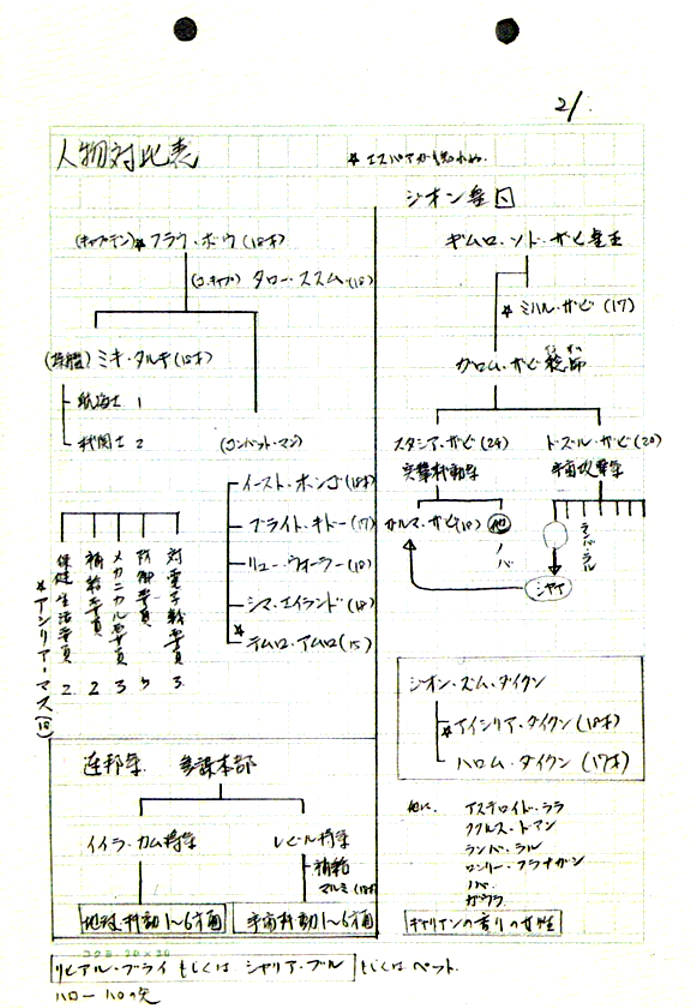 21.
人物対比表
☆エスパアかも知れぬ.
(キャプテン)☆フラウ・ボウ(18才)
(コ.キャプ) タロー・ススム(18)
(操艦) ミキ・タルキ(18才)
航海士 1
機関士 2
(コンバット・マン)
イースト・ホンゴ(18才)
ブライト・キドー(17)
リュー・ウォーラー(18)
シマ・エイランド(18)
☆テムロ・アムロ(15)
保健生活要員 2
☆アーシリア・マス(18)
補給要員 2
メカニカル要員 3
防御要員 5
対電子戦要員 3
連邦軍 参謀本部
イイラ・カム将軍
レビル将軍
補給
マルミ(18才)
地球機動1〜6方面
宇宙機動1〜6方面
ジオン皇国
ギムロ・ゾド・ザビ皇王
☆ミハル・ザビ(17)
ガロム・ザビ総帥
スタシア・ザビ(24)
突撃機動軍
ドズル・ザビ(20)
宇宙攻撃軍
ガルマ・ザビ(18)
他
ノバ
ランバ・ラル
シャア
ジオン・ズム・ダイクン
☆アイシリア・ダイクン(18才)
ハロム・ダイクン(17才)
他に.
アステロイド・ララ
ククルス・ドアン
ランバ・ラル
ロンリー・フラナガン
ノバ.
ガウラ
ギャリアンの香りの女性
コクヨ 20×20
リヒアル・ブライ もしくは シャリア・ブル もしくはペット.
ハロー ハロの矢